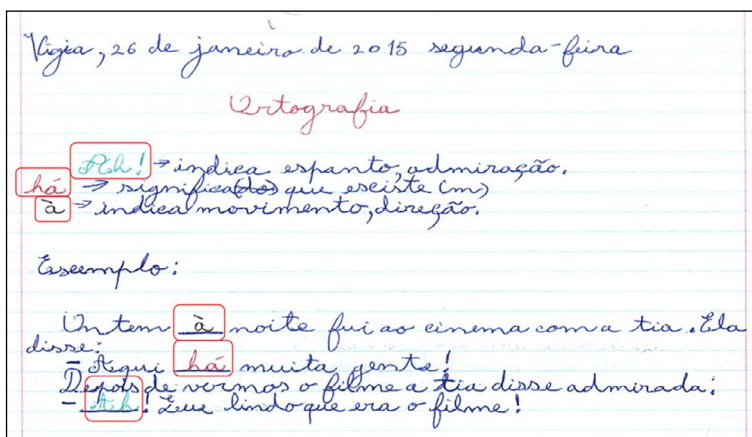 Vigia, 26 de janeiro de 2015 segunda-feira
Ortografia
Ah! → indica espanto, admiração.
há → significa(dos) que esciste (m)
à → indica movimento, direção.
Escemplo:
Ontem à noite fui ao cinema com a tia. Ela
disse:
– Aqui há muita gente!
Depois de vermos o filme a tia disse admirada:
– Ah! Que lindo que era o filme!